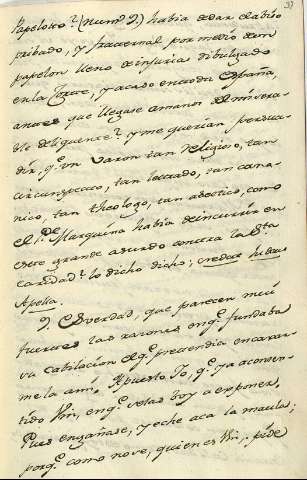 Papelotto? (num.º 2.) había de dar el abiso
pribado, y fraternal por medio de un
papelon lleno de injuria dibulgado
en la Corte, y acaso en toda España,
antes que llegase a manos del misera-
ble delinquente? y me querian persua-
dir, q.e un varon tan religioso, tan
circunspecto, tan letrado, tan cano-
nico, tan theologo, tan ascetico, como
el P.e Marquina había de incurrir en
este grande absurdo contra la S.ta
caridad? lo dicho dicho; credat Iudæus
Apella.
9. Es verdad, que parecen mui
fuertes las razones en q.e fundaba
su cabilacion el q.e pretendia encaxar-
mela a mi. Apuesto Yo, q.e ya a consen-
tido Vm, en q.e se las boy a exponer,
Pues engañase, y eche aca la maula;
porq.e como no ve, quien es Vm, pide